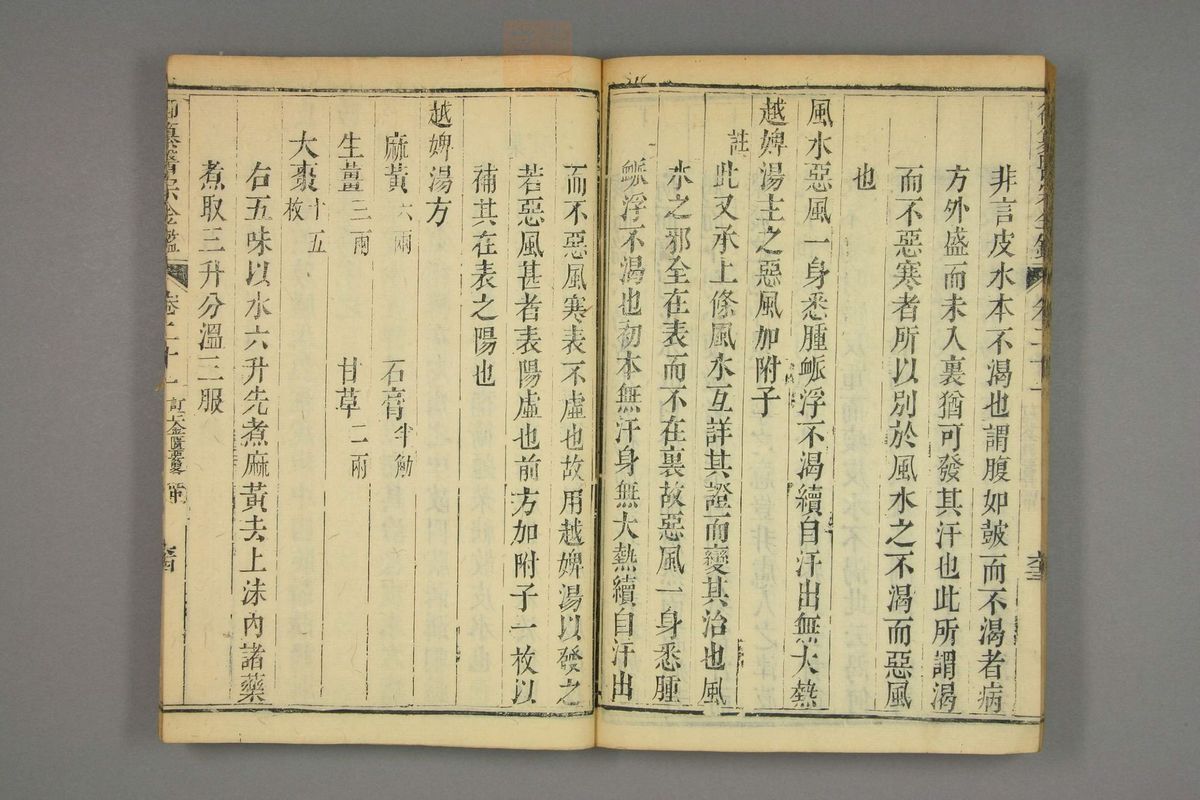 非言皮水本不渴也謂腹如皷而不渴者病
方外盛而未入裏猶可發其汗也此所謂渴
而不惡寒者所以別於風水之不渴而惡風
也
風水惡風一身悉腫脈浮不渴續自汗出無大熱
越婢湯主之惡風加附子
註此又承上條風水互詳其證而變其治也風
水之邪全在表而不在裏故惡風一身悉腫
脈浮不渴也初本無汗身無大熱續自汗出
而不惡風寒表不虛也故用越婢湯以發之
若惡風甚者表陽虛也前方加附子一枚以
補其在表之陽也
越婢湯方
麻黃六兩 石膏半觔
生薑三兩 甘草二兩
大棗十五枚
右五味以水六升先煮麻黃去上沫內諸藥
煮取三升分溫三服
御纂醫宗金鑑 卷二十一 訂正金匱要畧